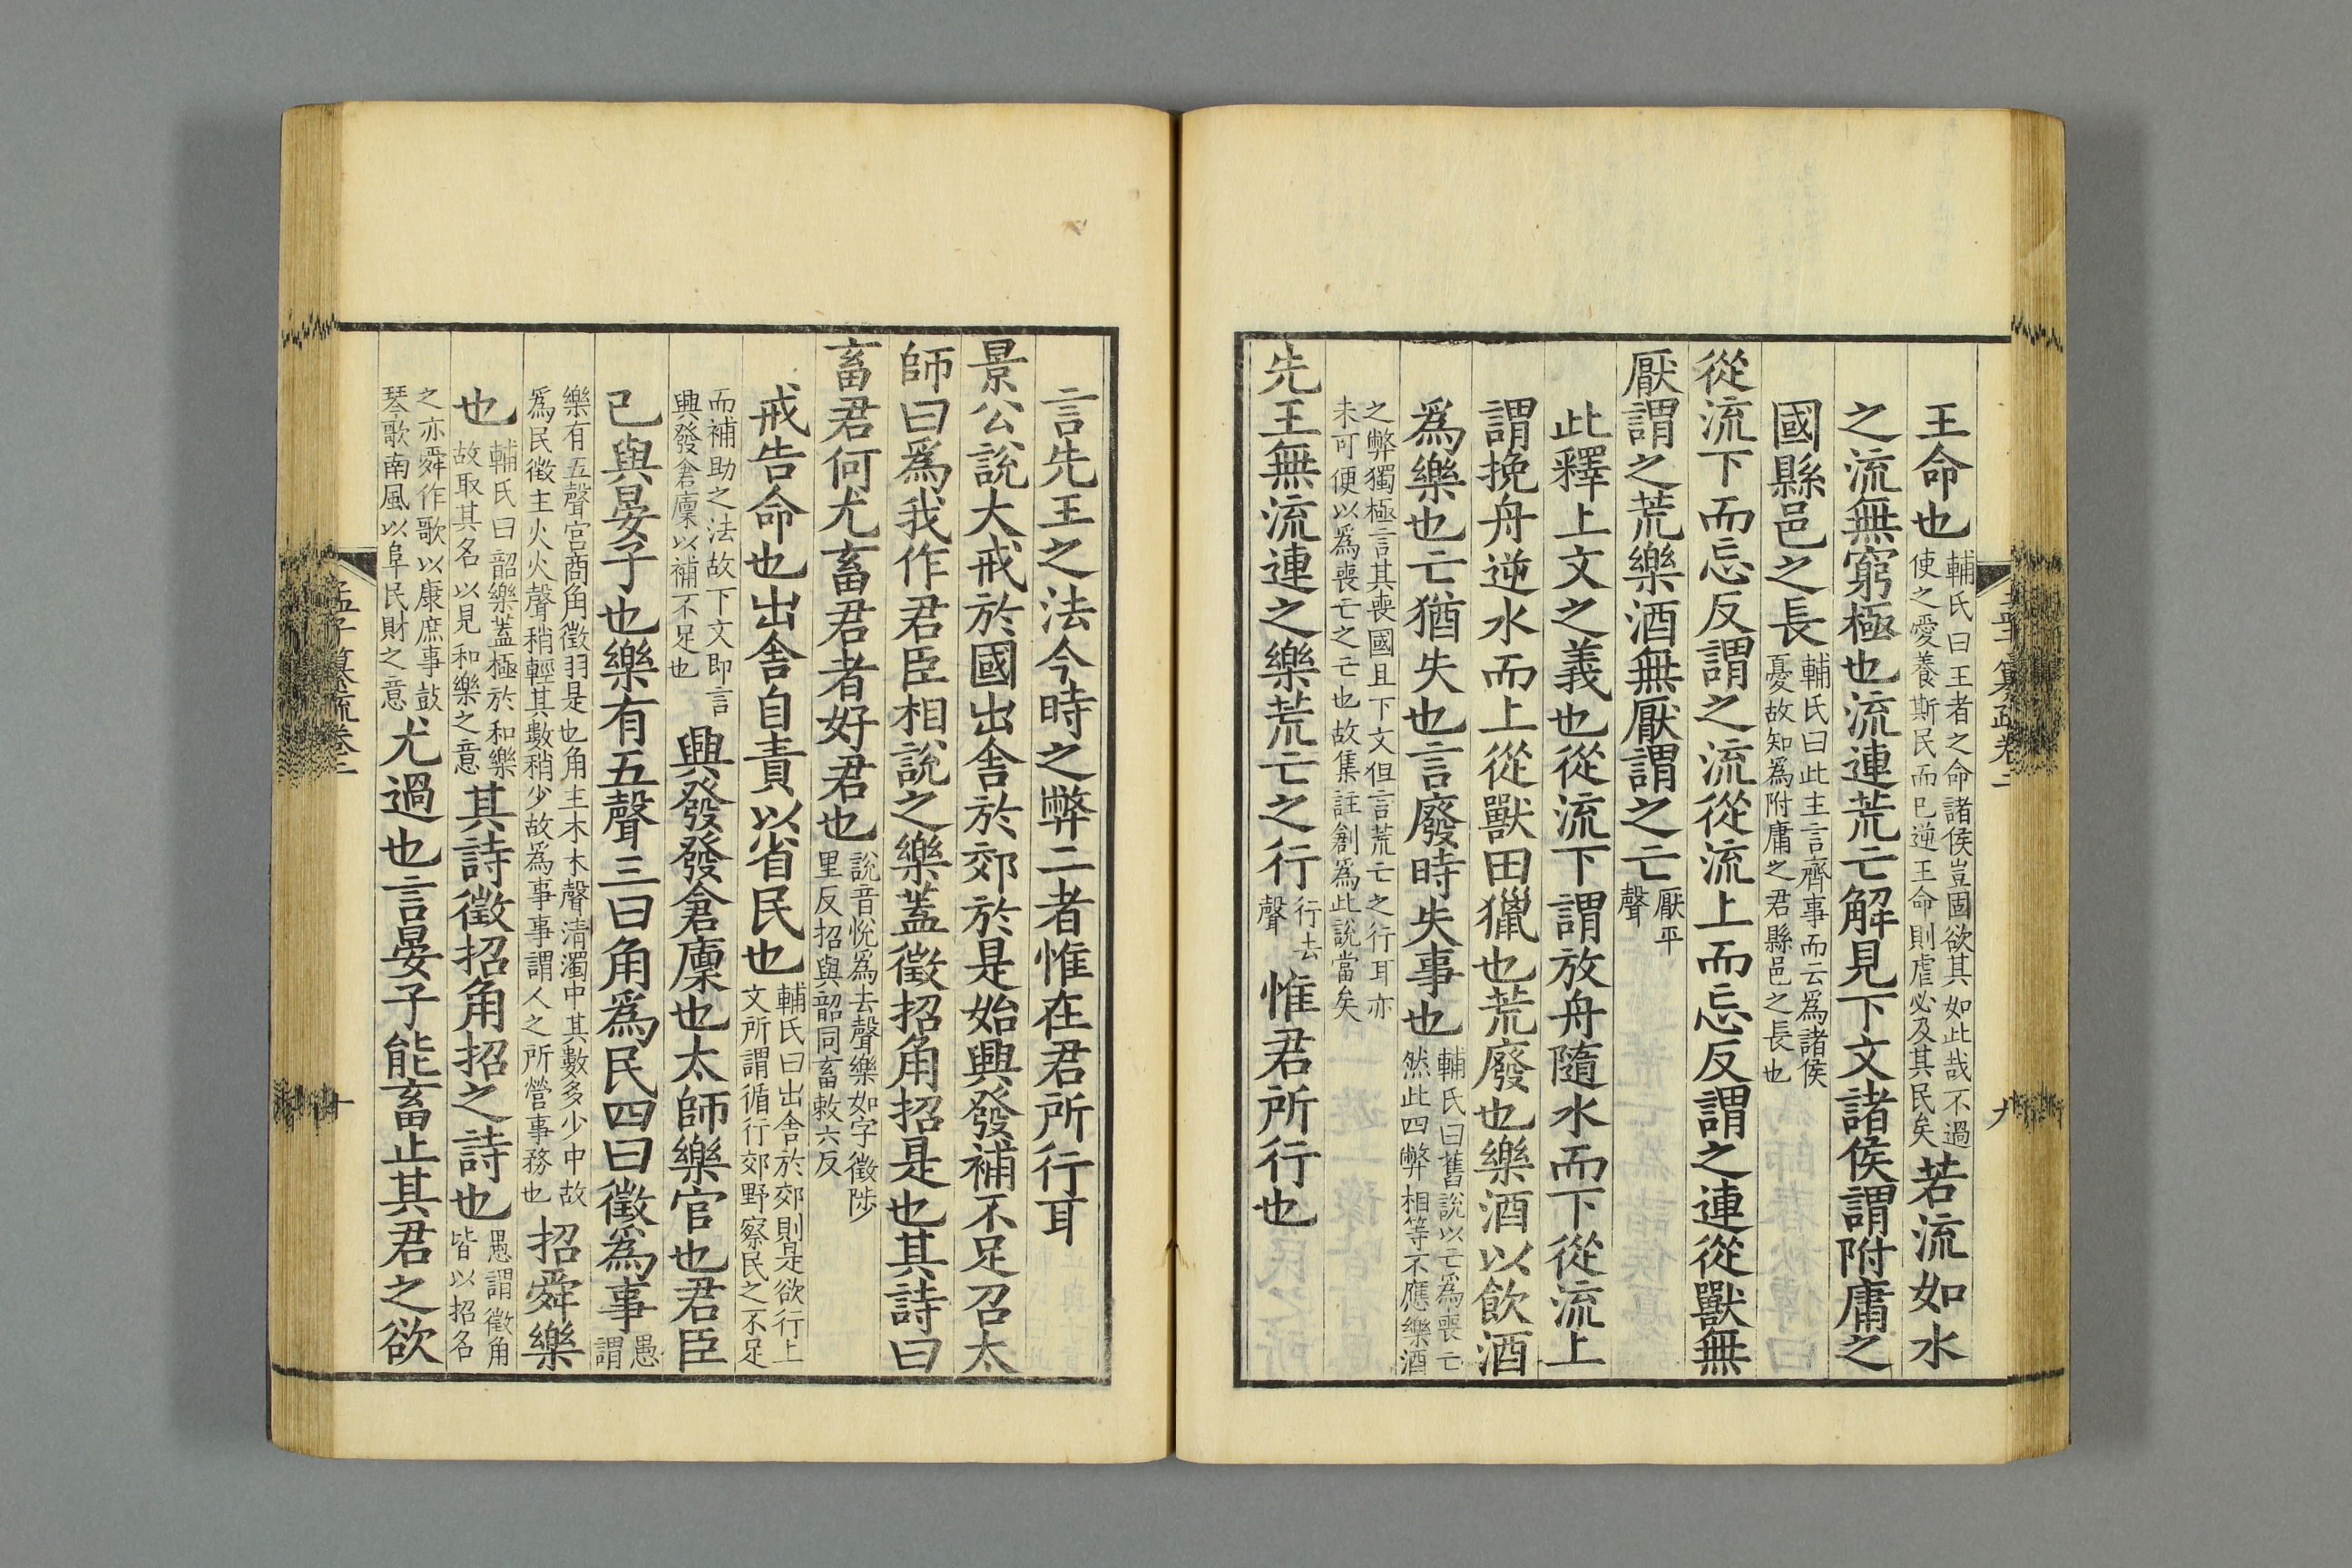 王命也輔氏曰王者之命諸侯豈固欲其如此哉不過使之愛養斯民而已逆王命則虐必及其民矣若流如水
之流無窮極也流連荒亡解見下文諸侯謂附庸之
國縣邑之長輔氏曰此主言齊事而云為諸侯憂故知為附庸之君縣邑之長也
從流下而忘反謂之流從流上而忘反謂之連從獸無
厭謂之荒樂酒無厭謂之亡厭平聲
此釋上文之義也從流下謂放舟隨水而下從流上
謂挽舟逆水而上從獸田獵也荒廢也樂酒以飲酒
爲樂也亡猶失也言廢時失事也輔氏曰舊說以亡爲喪亡然此四弊相等不應樂酒
之弊獨極言其喪國且下文但言荒亡之行耳亦未可便以爲喪亡之亡也故集註創爲此說當矣
先王無流連之樂荒亡之行行去聲惟君所行也
孟子纂疏卷二
九
言先王之法今時之弊二者惟在君所行耳
景公說大戒於國出舍於郊於是始興發補不足召太
師曰爲我作君臣相說之樂蓋徵招角招是也其詩曰
畜君何尤畜君者好君也說音悅爲去聲樂如字徵陟里反招與韶同畜敕六反
戒告命也出舍自責以省民也輔氏曰出舍於郊則是欲行上文所謂循行郊野察民之不足
而補助之法故下文即言興發倉廩以補不足也興發發倉廩也太師樂官也君臣
已與晏子也樂有五聲三曰角爲民四曰徵爲事愚謂
樂有五聲宮商角徵羽是也角主木木聲清濁中其數多少中故爲民徵主火火聲稍輕其數稍少故爲事事謂人之所營事務也招舜樂
也輔氏曰韶樂蓋極於和樂故取其名以見和樂之意其詩徵招角招之詩也愚謂徵角皆以招名
之亦舜作歌以康庶事鼓琴歌南風以阜民財之意尤過也言晏子能畜止其君之欲
孟子纂疏卷二
十